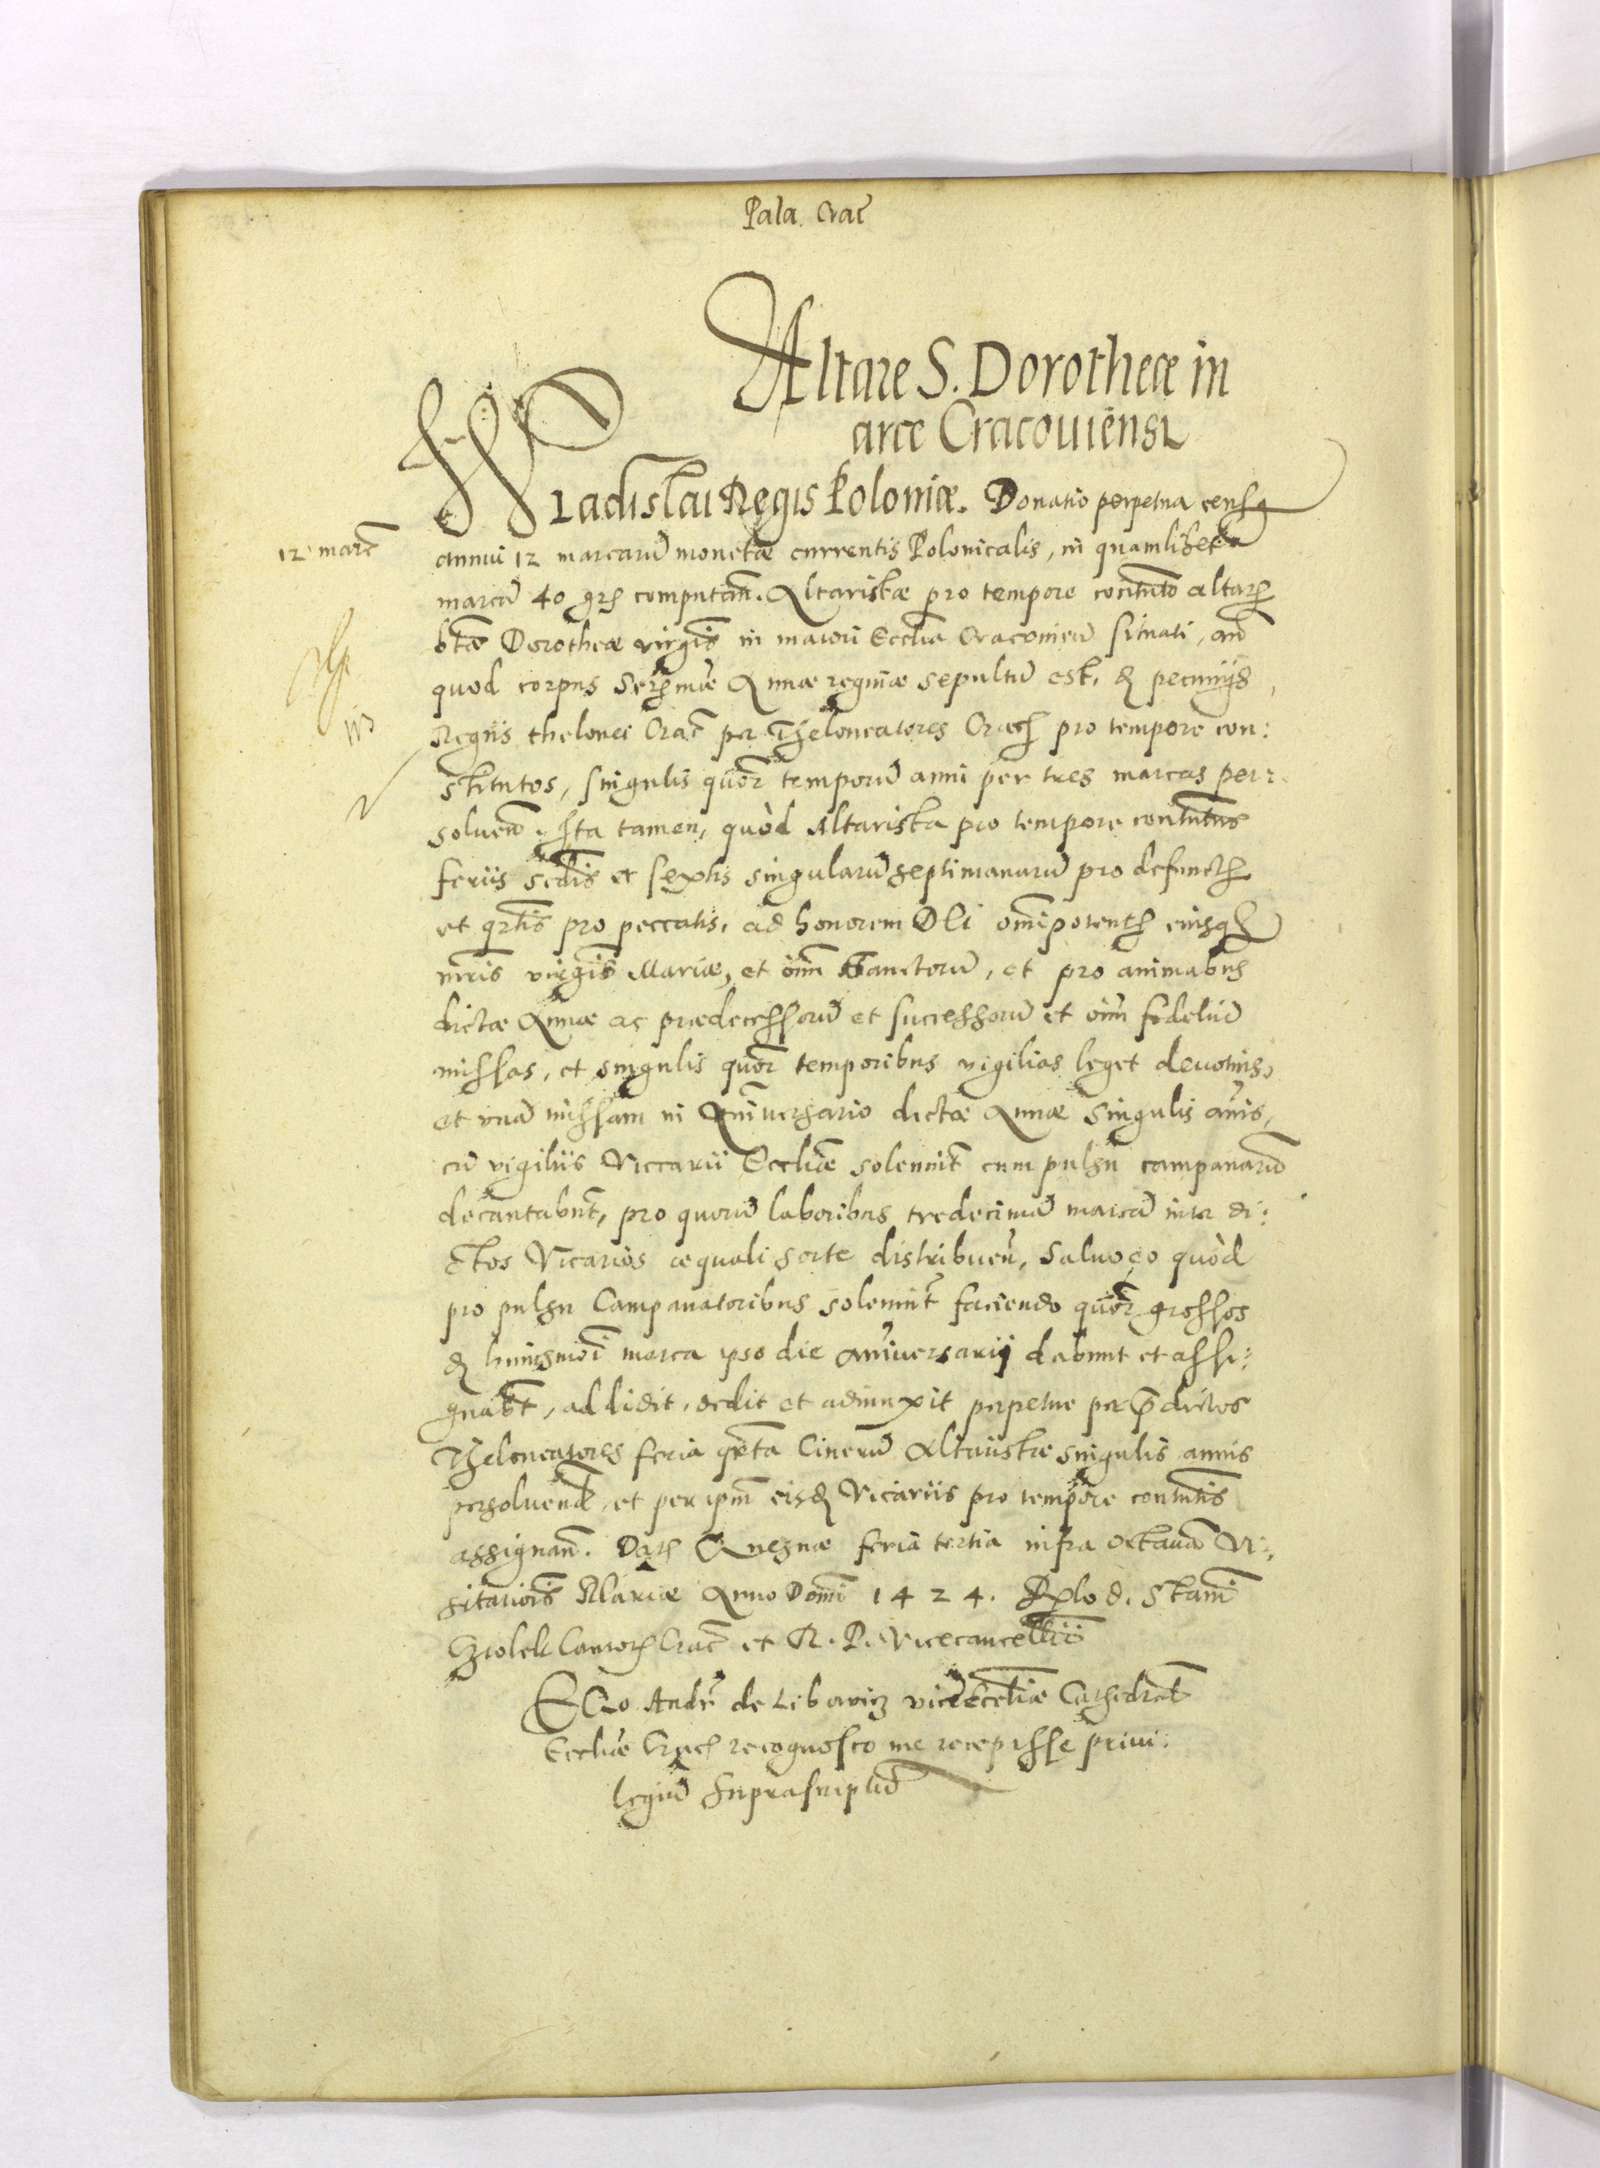 Pala. Crac̄
Altare S. Dorotheæ in
arce Cracouiensi
Wladislai Regis Poloniæ. Donatio perpetua census
12 marc̄
annui 12 marcarū monetæ currentis Polonicalis, in quamlibet
marcā 40 grs computan̄. Altaristæ pro tempore contuto altaris
btæ Dorotheæ virgis in maiori Ecclia Cracouien̄ situati, an̄
quod corpus Sermæ Annæ reginæ sepultū est, de pecunijs
Regiis thelonei Crac̄ per Theloneatores Crac̄ pro tempore con:
stitutos, singulis quor temporū anni per tres marcas per:
soluen̄. Ita tamen, quòd Altarista pro tempore contutus
feriis sedis et sextis singularū septimanarū pro defunctis
et qrtis pro peccatis, ad honorem Dei omipotentis eiusq
mris virgis Mariæ, et oim Sanctorū, et pro animabus
dictæ Annæ ac prædecessorū et successorū et oim fideliū
missas, et singulis quor temporibus vigilias leget deuotius,
et vnā missam in Anniuersario dictæ Annæ singulis annis,
cū vigiliis Viccarii Eccliæ solennit cum pulsu campanarū
decantabnt, pro quorū laboribus tredecimā marcā inter di:
ctos Vicarios æquali sorte distribuen̄, Saluo eo quòd
pro pulsu Campanatoribus solennit faciendo quor grossos
de huiusmoi marca ipso die anniuersarij dabunt et assi:
gnabt, addidit, dedit et adiunxit perpetue per p̄dictos
Theloneatores feria qrta Cinerū Altaristæ singulis annis
persoluend, et per ipm eisde Vicariis pro tempore contutis
assignan̄. Dat Gnesnæ feria tertia infra octauā Vi:
sitatiois Mariæ Anno Domi 1424. Rlo d. Stani
Cziolek Cantoris Crac̄ et R. P. Vicecancellrii
Ego Andr̄ de Libovicz vice Cathedral
Eccliæ Crac̄ recognosco me recepisse priui:
legiū suprascriptū